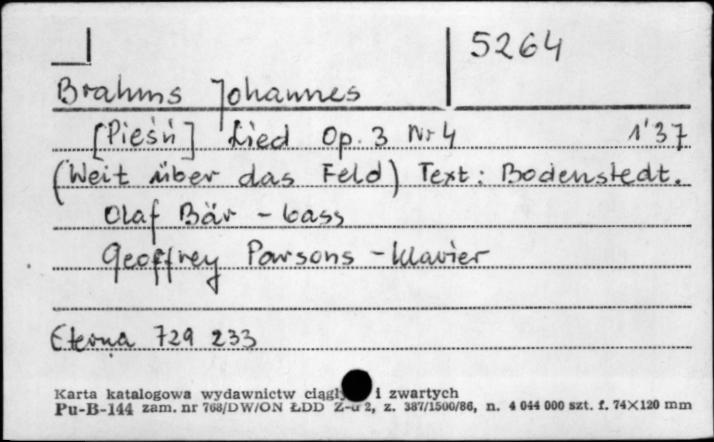 5264
Brahms Johannes
[Pieśń] Lied Op. 3 Nr 4 1'37
(Weit über das Feld) Text: Bodenstedt.
Olaf Bär - bass
Geoffrey Parsons - Klavier
Eterna 729 233
Karta katalogowa wydawnictw ciągł i zwartych
Pu-B-144 zam. nr 768/DW/ON ŁDD Z-d 2, z. 387/1500/86, n. 4 044 000 szt. f. 74×120 mm